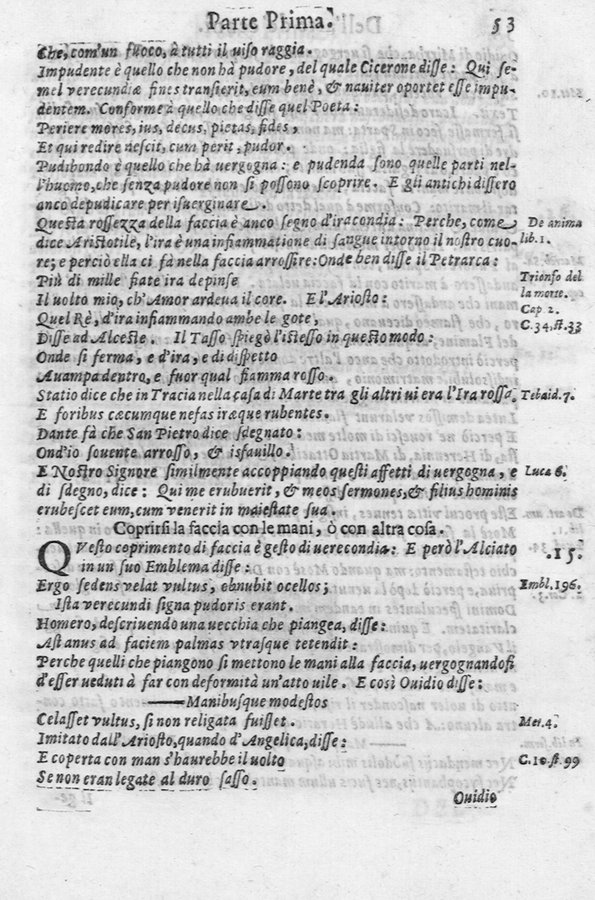 Parte Prima. 53
Che, com'un fuoco, à tutti il uiso raggia.
Impudente è quello che non hà pudore, del quale Cicerone disse: Qui se-
mel verecundiæ fines transierit, eum benè, & nauiter oportet esse impu-
dentem. Conforme à quello che disse quel Poeta:
Periere mores, ius, decus, pietas, fides,
Et qui redire nescit, cum perit, pudor.
Pudibondo è quello che hà uergogna: e pudenda sono quelle parti nel-
l'huomo, che senza pudore non si possono scoprire. E gli antichi dissero
anco depudicare per isuerginare.
Questa rossezza della faccia è anco segno d'iracondia: Perche, come De anima
dice Aristotile, l'ira è una infiammatione di sangue intorno il nostro cuo- lib. 1.
re; e perciò ella ci fà nella faccia arrossire: Onde ben disse il Petrarca:
Più di mille fiate ira depinse Trionfo del
Il uolto mio, ch'Amor ardeua il core. E l'Ariosto: la morte.
Quel Rè, d'ira infiammando ambe le gote, Cap 2.
Disse ad Alceste. Il Tasso spiegò l'istesso in questo modo: C. 34. st. 33
Onde si ferma, e d'ira, e di dispetto
Auampa dentro, e fuor qual fiamma rosso.
Statio dice che in Tracia nella casa di Marte tra gli altri ui era l'Ira rossa, Tebaid. 7.
E foribus cæcumque nefas iræque rubentes.
Dante fà che San Pietro dice sdegnato:
Ond'io souente arrosso, & isfauillo.
E Nostro Signore similmente accoppiando questi affetti di uergogna, e Luca 6.
di sdegno, dice: Qui me erubuerit, & meos sermones, & filius hominis
erubescet eum, cum venerit in maiestate sua.
Coprirsi la faccia con le mani, ò con altra cosa.
QVesto coprimento di faccia è gesto di uerecondia: E però l'Alciato .15.
in un suo Emblema disse:
Ergo sedens velat vultus, obnubit ocellos; Embl. 196.
Ista verecundi signa pudoris erant.
Homero, descriuendo una uecchia che piangea, disse:
Ast anus ad faciem palmas vtrasque tetendit:
Perche quelli che piangono si mettono le mani alla faccia, uergognandosi
d'esser ueduti à far con deformità un'atto uile. E così Ouidio disse:
——Manibusque modestos
Celasset vultus, si non religata fuisset. Met. 4.
Imitato dall'Ariosto, quando d'Angelica, disse:
E coperta con man s'haurebbe il uolto C. 10. st 99
Se non eran legate al duro sasso.
Ouidio